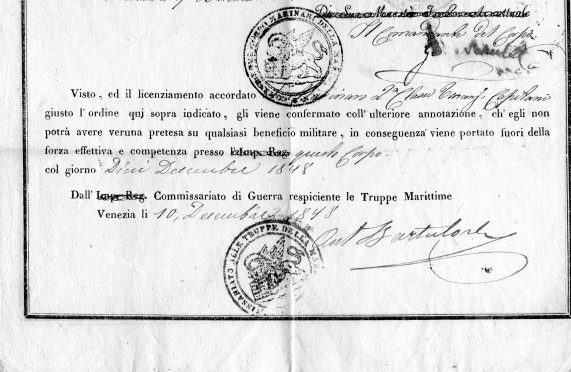 Il Comandante del Corpo
MARINARI DELLA
Visto, ed il licenziamento accordato
2ª Classe
giusto l'ordine quì sopra indicato, gli viene confermato coll'ulteriore annotazione, ch'egli non
potrà avere veruna pretesa su qualsiasi beneficio militare, in conseguenza viene portato fuori della
forza effettiva e competenza presso l'Imp. Reg. questo Corpo
col giorno Dieci Decembre 1848
Dall' Imp. Reg. Commissariato di Guerra respiciente le Truppe Marittime
Venezia li 10, Decembre 1848
COMMISSARIATO ALLE TRUPPE DELLA